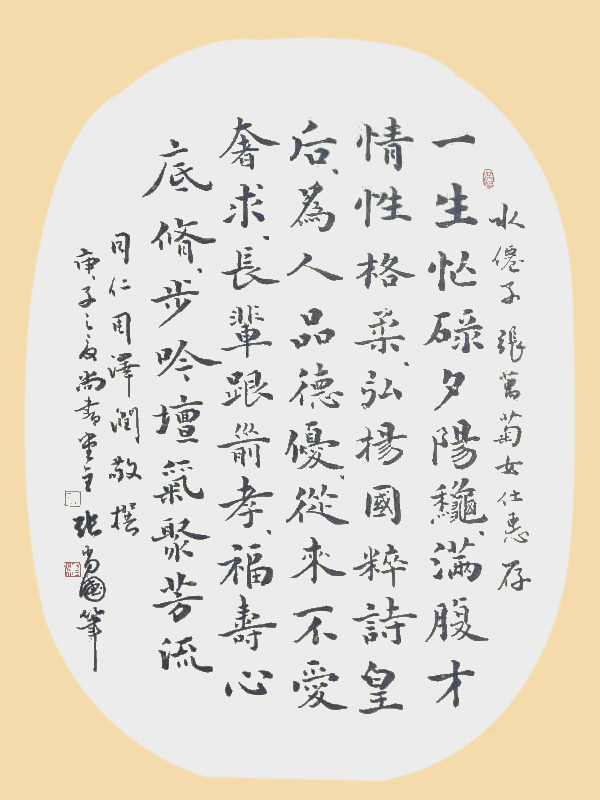 水僊子張萬菊女仕惠存
一生忙碌夕陽龝、滿腹才
情性格柔、弘揚國粹詩皇
后、為人品德優、從來不愛
奢求、長輩跟前孝、福壽心
底脩、步吟壇氣聚芳流
同仁周澤潤敬撰
庚子之夏尚書堂主張尚國筆